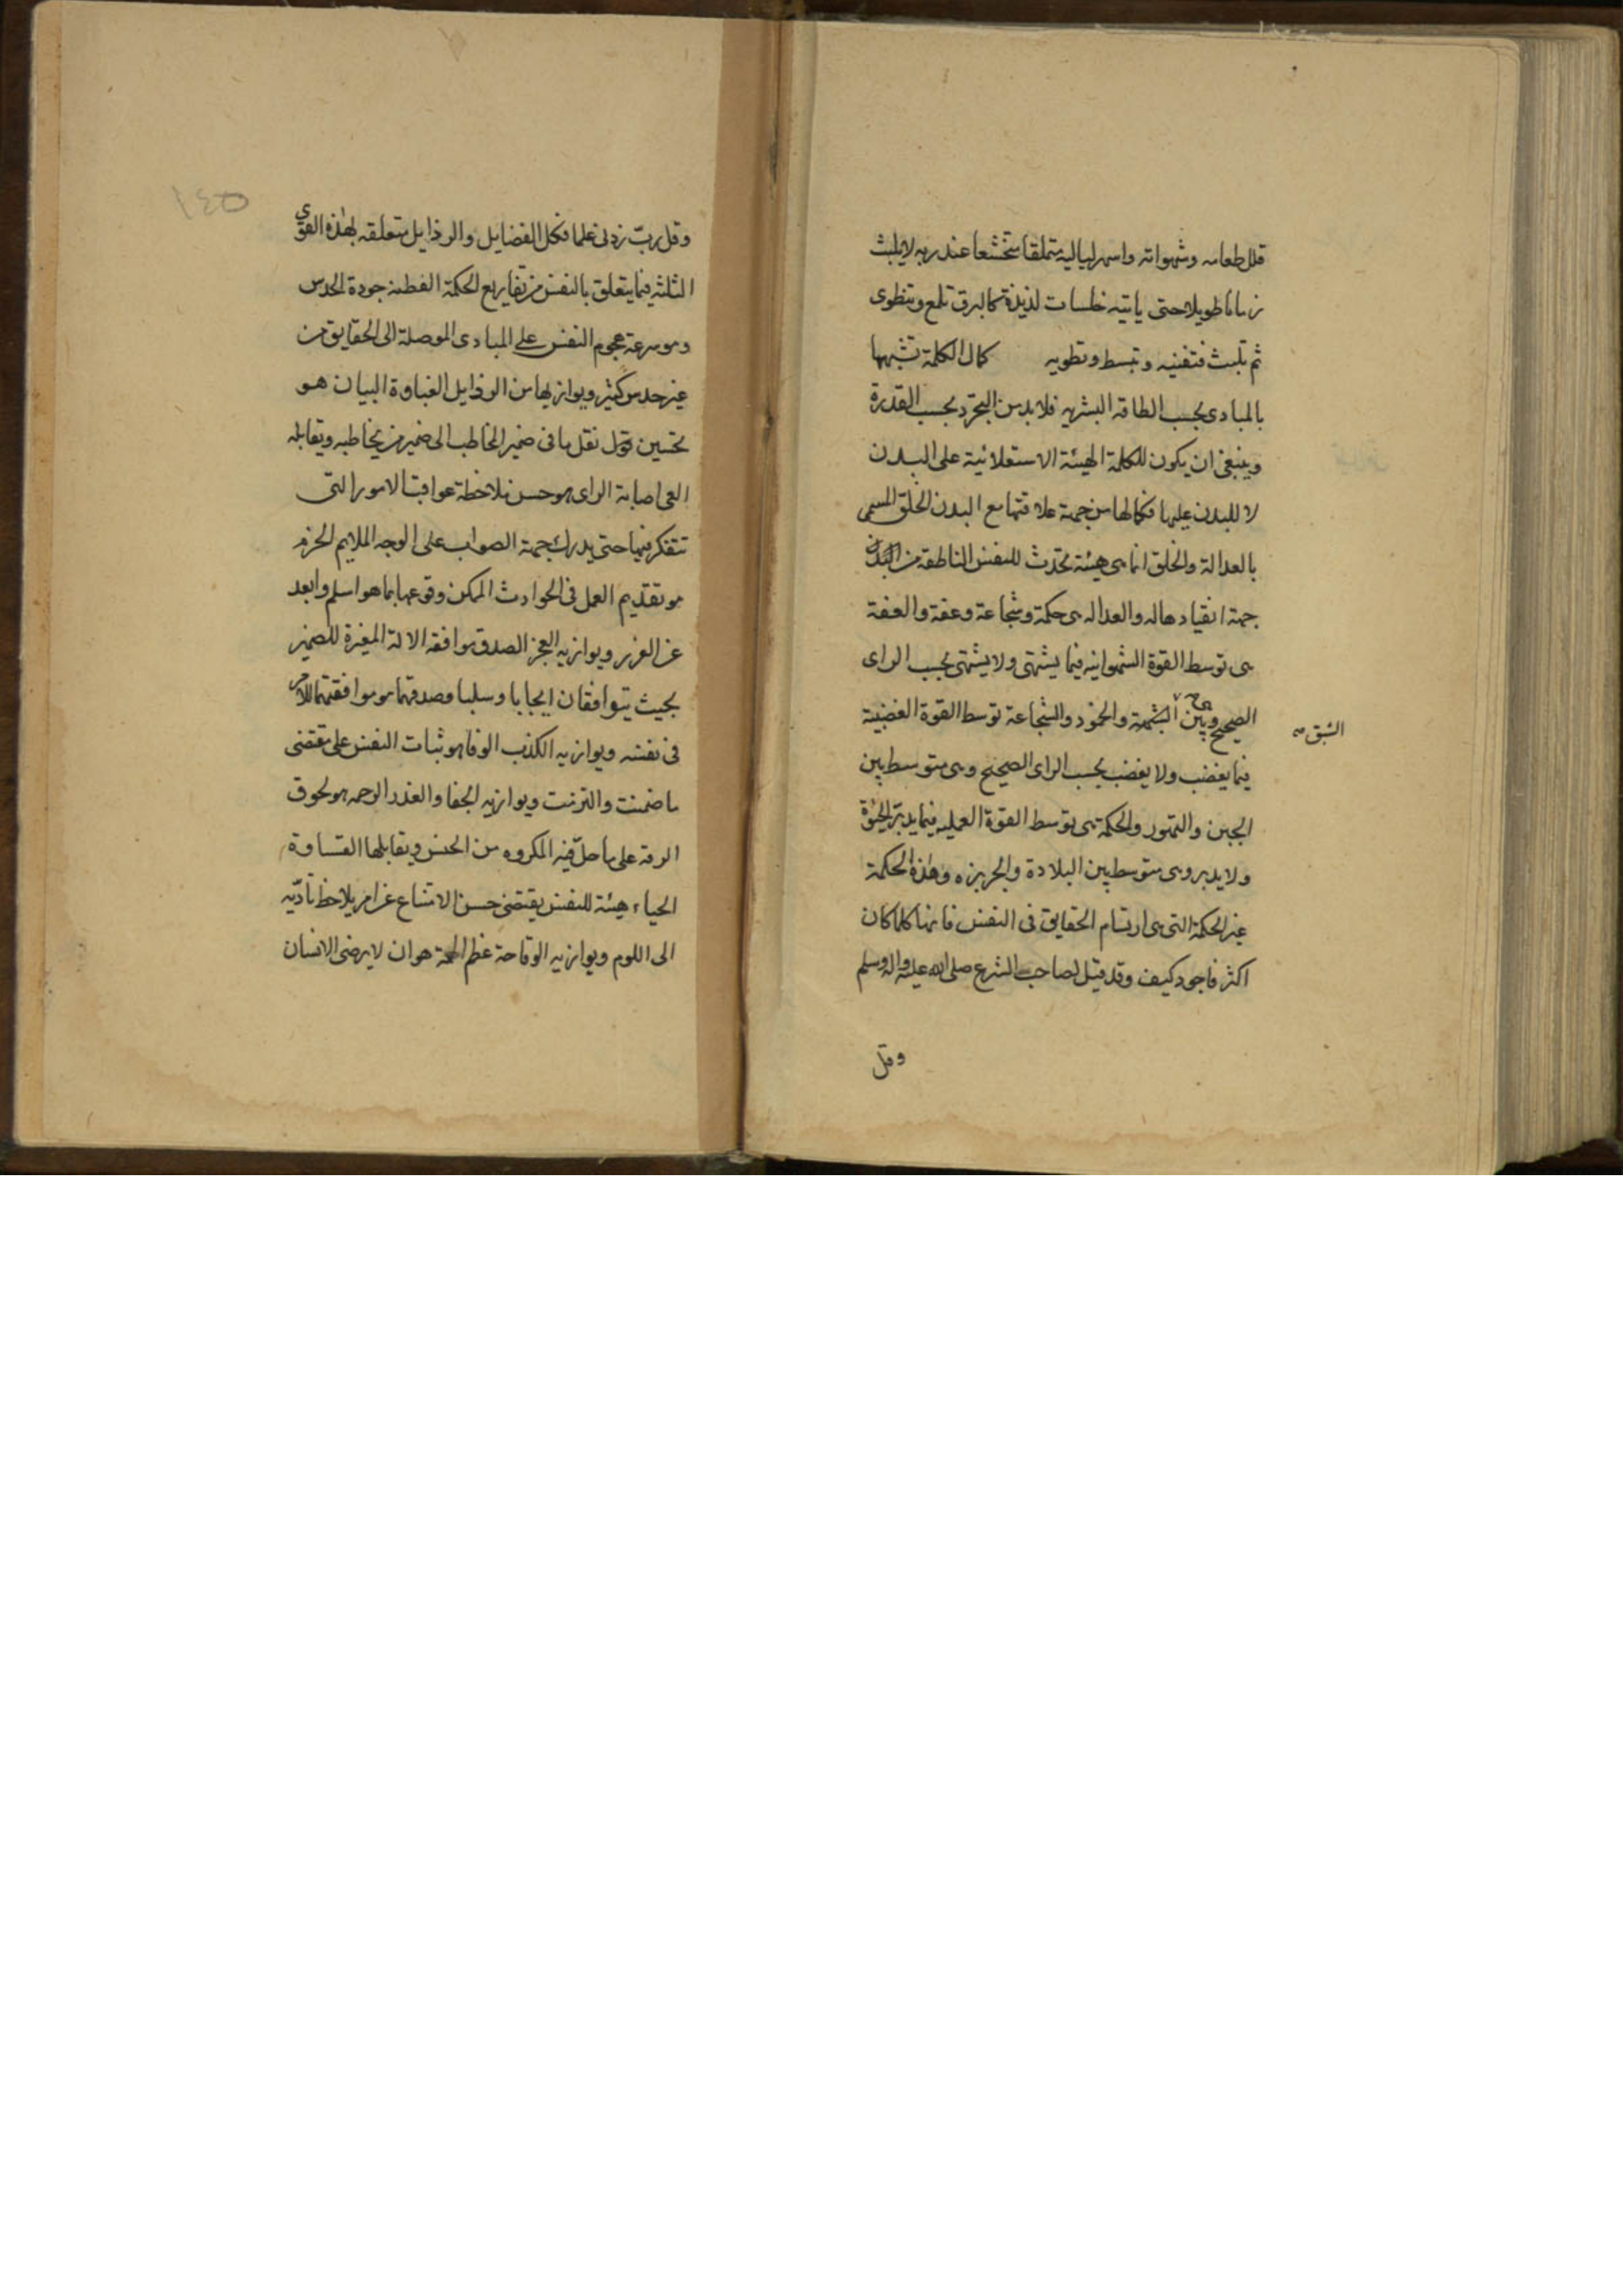 قلل طعامه وشهواته واسهر لياليه متملقا متخشعا عند ربه لا يلبث
زمانا طويلا حتى ياتيه خلسات لذيذة كالبرق تلمع وتنطوى
ثم تلبث فتفنيه وتبسط وتطويه كمال الكلمة تشبهها
بالمبادى بحسب الطاقه البشريه فلا بد من التجرد بحسب القدرة
وينبغى ان يكون للكلمة الهيئة الاستعلائية على البدن
لا للبدن عليها فكمالها من جهة علاقتها مع البدن الخلق المسمى
بالعدالة والخلق انما هى هيئة تحدث للنفس الناطقة من البدن
جهة انقيادها له والعداله هى حكمة وشجاعة وعفة والعفة
هى توسط القوة الشهوانيه فيما يشتهى ولا يشتهى بحسب الراى
الصحيح وهى بين الشهمة والخمود والشجاعة توسط القوة الغضبية
الشبق صه
فيما يغضب ولا يغضب بحسب الراى الصحيح وهى متوسط بين
الجبن والتهور والحكمة هى توسط القوة العمليه فيما يدبر الحيوة
ولا يدبر وهى متوسط بين البلادة والجربزه وهذه الحكمة
غير الحكمة التى هى ارتسام الحقايق فى النفس فانها كلما كان
اكثر فاجود كيف وقد قيل لصاحب الشرع صلى الله عليه واله وسلم
وقل
١٤٥
وقل رب زدنى علما فكل الفضايل والرذايل متعلقه بهذه القوى
الثلثه فيما يتعلق بالنفس من تفاريع الحكمة الفطنه جودة الحدس
وهو سرعة هجوم النفس على المبادى الموصلة الى الحقايق من
غير حدس كثير ويوازيها من الرذايل الغباوة البيان هو
تحسين نقل ما فى ضمير المخاطب الى ضمير من يخاطبه ويقابله
العى اصابة الراى هو حسن ملاحظة عواقب الامور التى
تتفكر فيها حتى يدرك جهة الصواب على الوجه الملايم الحزم
هو تقديم العمل فى الحوادث الممكن وقوعها بما هو اسلم وابعد
عن الغرر ويوازيه العجز الصدق موافقه الالة المعبرة للضمير
بحيث يتوافقان ايجابا وسلبا وصدقهما هو موافقتهما للامر
فى نفسه ويوازيه الكذب الوفا هو ثبات النفس على مقتضى
ما ضمنت والتزمت ويوازيه الجفا والغدر الرحمه هو لحوق
الرقة على ما حل فيه المكروه من الجنس ويقابلها القساوة
الحياء هيئة للنفس يقتضى حسن الامتناع عن امر يلاحظ تأديه
الى اللوم ويوازيه الوقاحة عظم الهمة هو ان لا يرضى الانسان